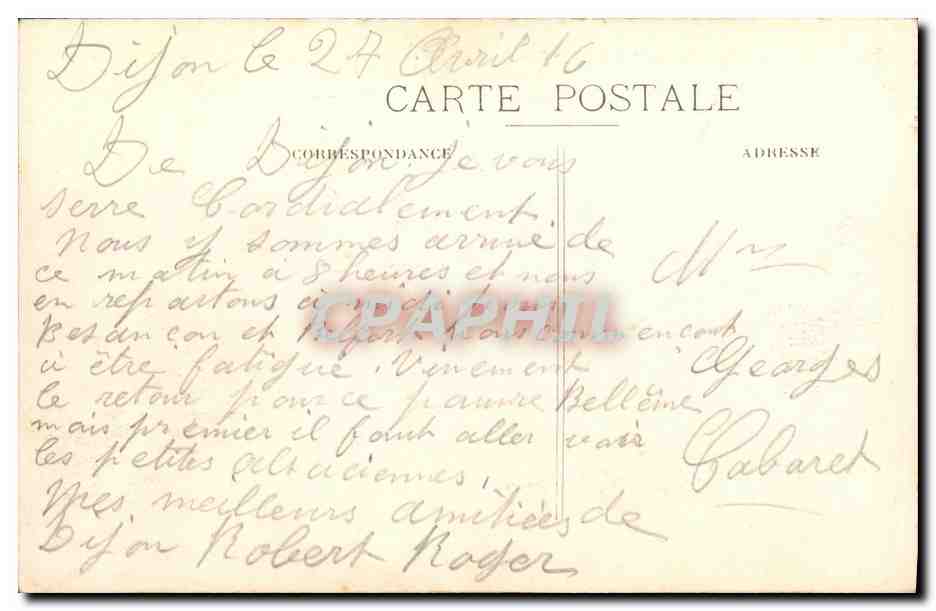 Dijon le 27 Avril 16
CARTE POSTALE
CORRESPONDANCE
ADRESSE
De Dijon je vous
serre Cordialement
Nous y sommes arrivé de
ce matin à 8 heures et nous
en repartons à midi pour
Besançon et Belfort nous commencont
à être fatigué. Vivement
le retour pour ce pauvre Bellême
mais premier il faut aller voir
les petites alsaciennes,
Mes meilleurs amitiées de
Dijon Robert Roger
Mr
Georges
Cabaret
CPAPHIL